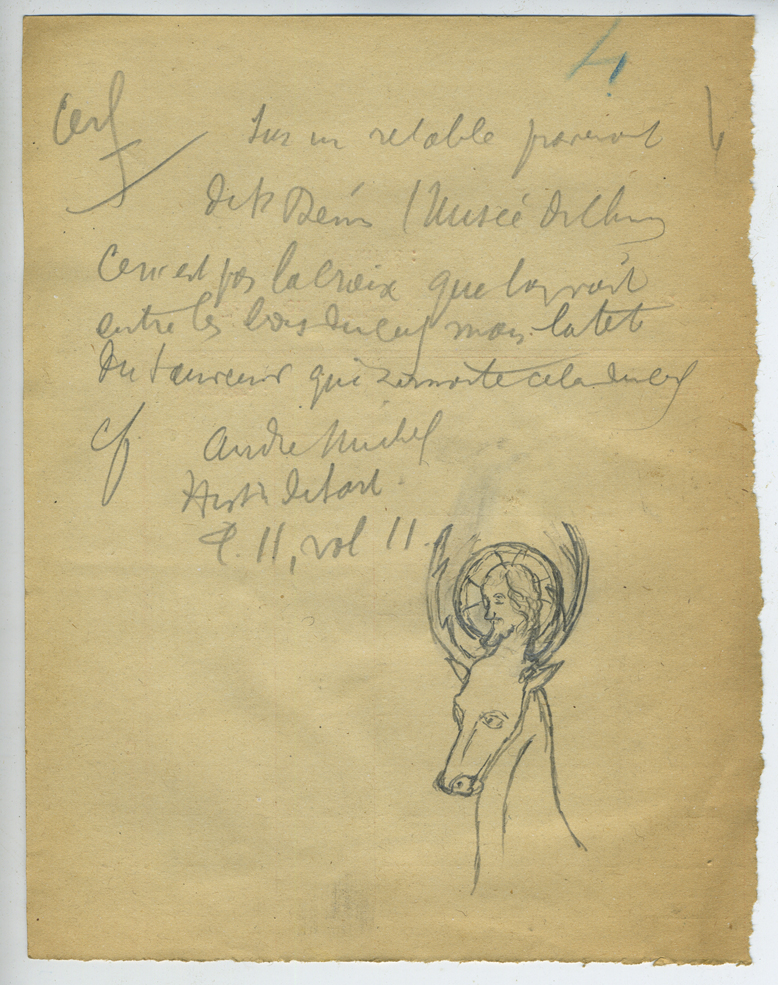 4
Cerf
Sur un retable provenant
de St Denis (Musée de Cluny
Ce n'est pas la croix que l'on voit
entre les bois du cerf mais la tête
du Sauveur qui surmonte celle du cerf
cf André Michel
Hist. de l'art
t. II, vol II.